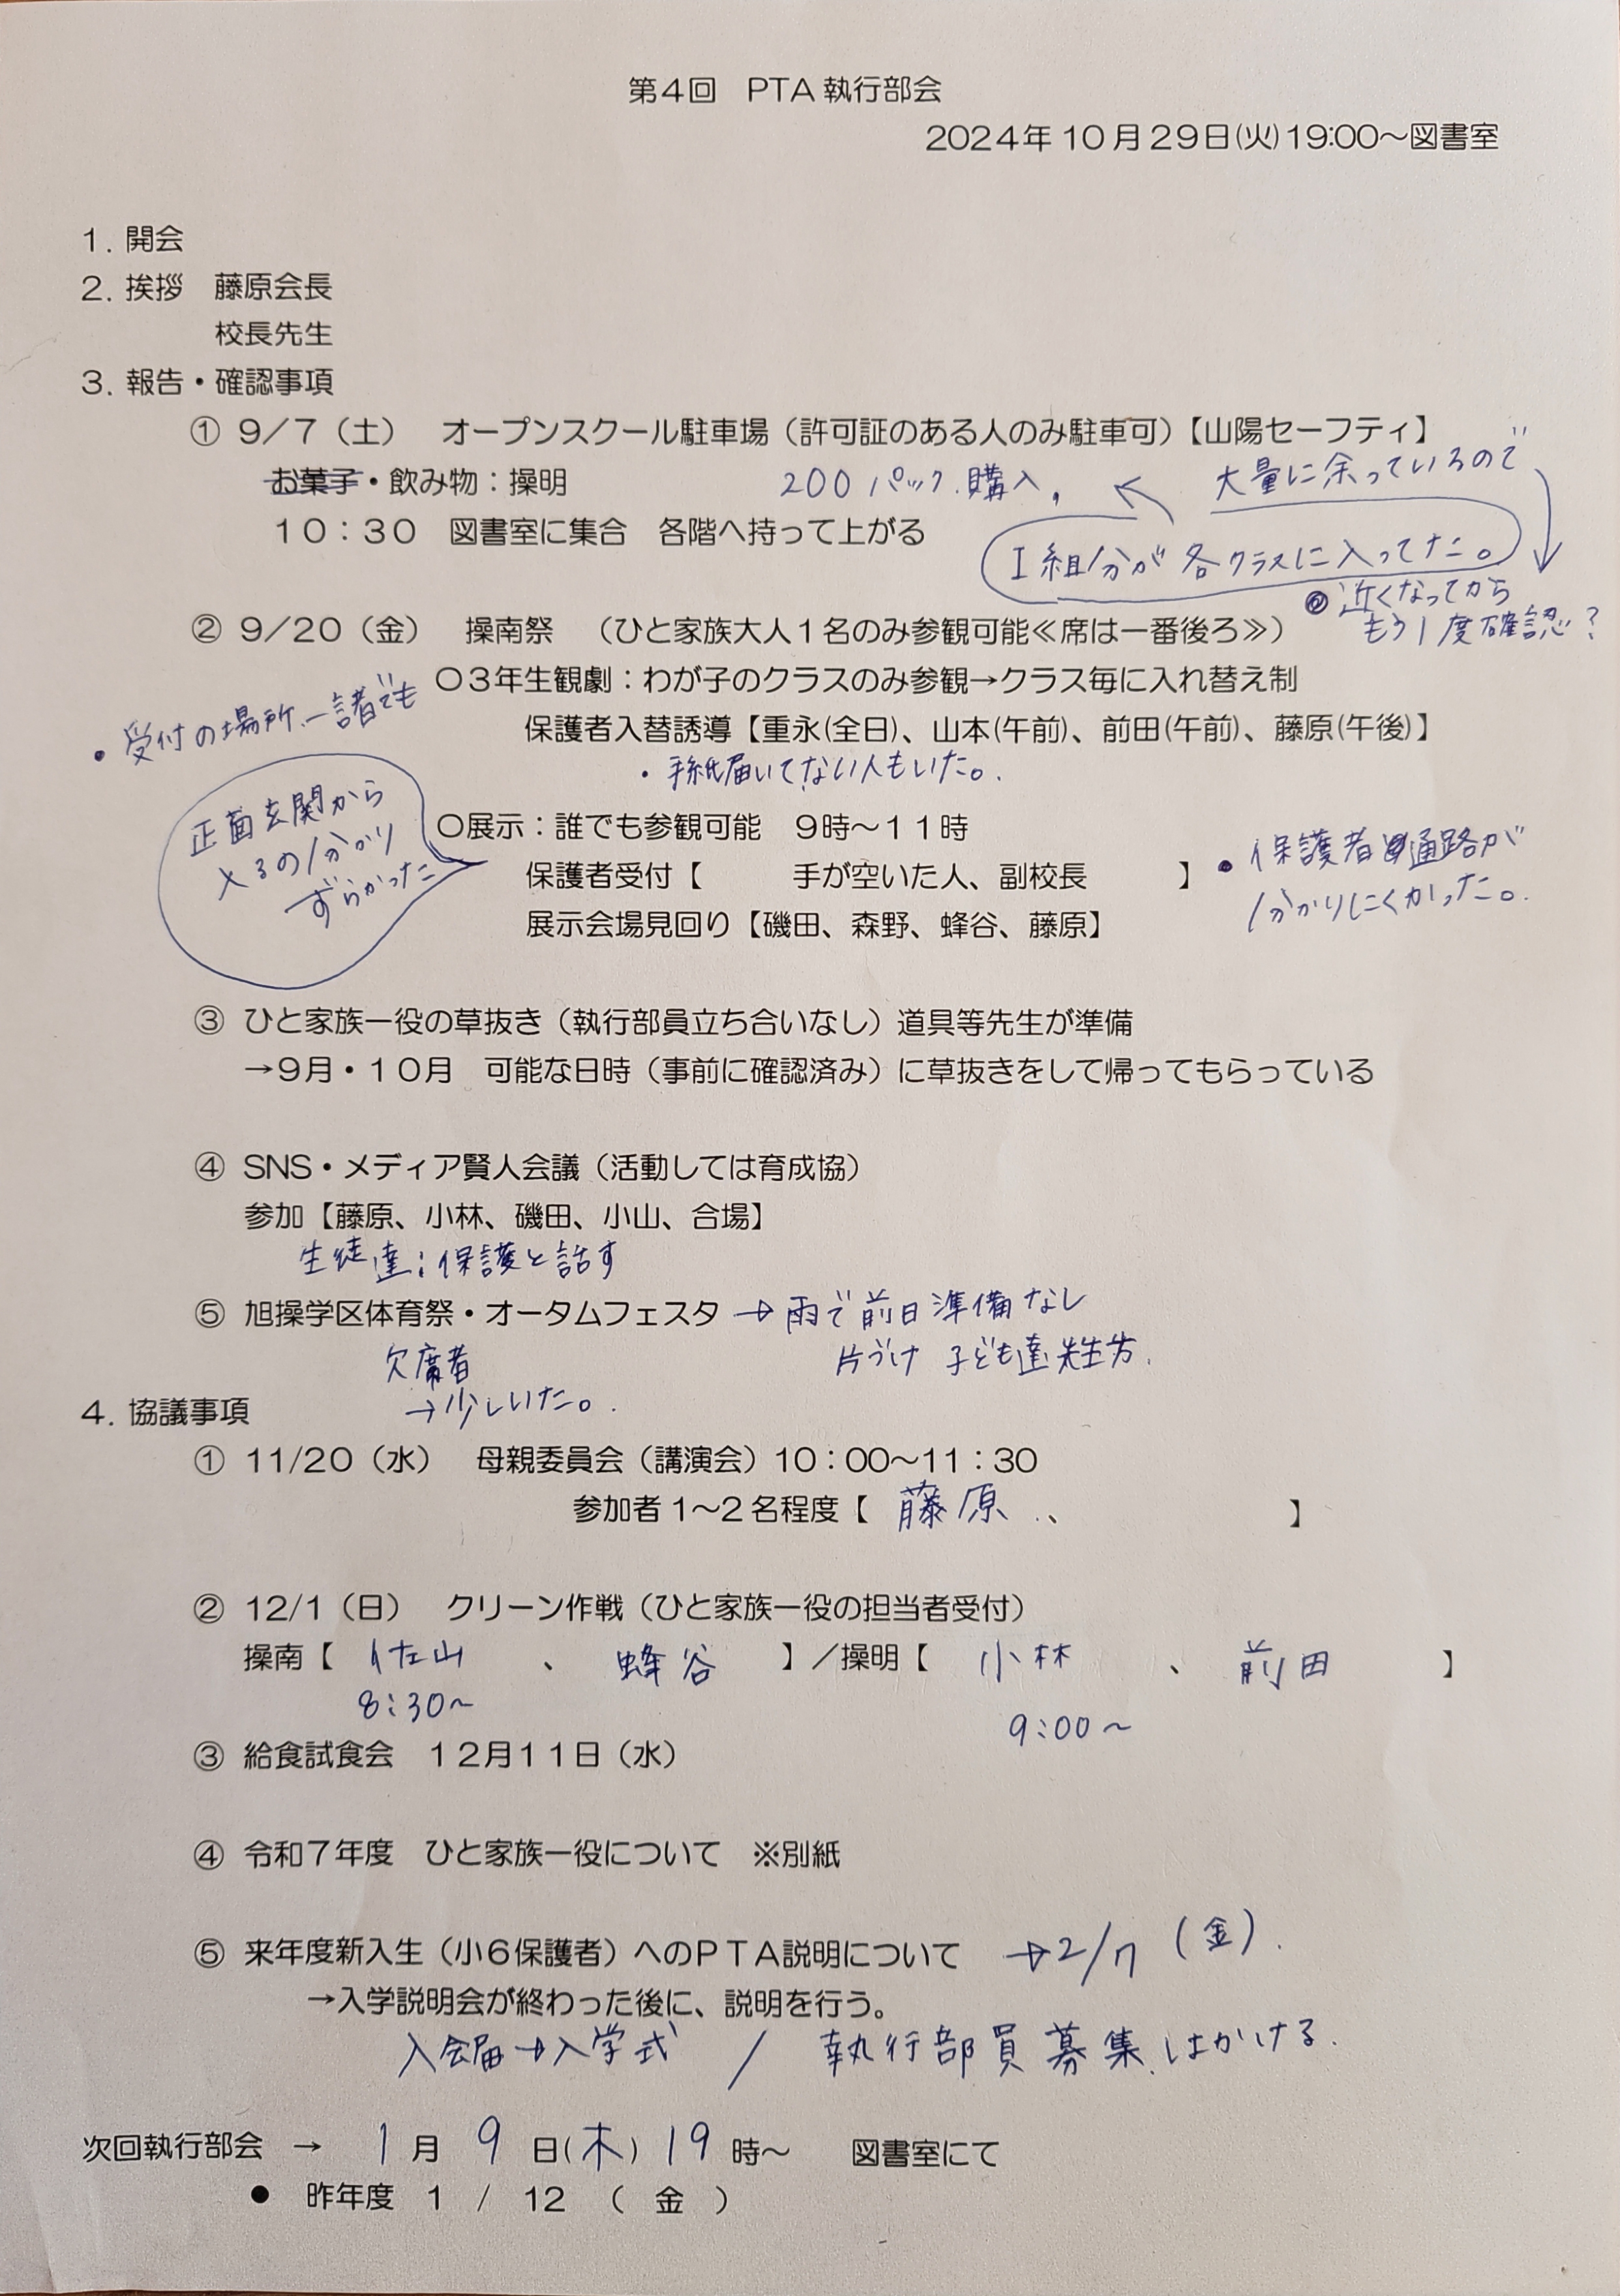 第4回　PTA 執行部会
2024年10月29日(火)19:00～図書室
1. 開会
2. 挨拶　藤原会長
校長先生
3. 報告・確認事項
① 9／7（土）　オープンスクール駐車場（許可証のある人のみ駐車可）【山陽セーフティ】
お菓子・飲み物：操明
200パック購入、　←　大量に余っているので
10：30　図書室に集合　各階へ持って上がる
1組分が各クラスに入ってた。
◎近くなってから
もう1度確認？
② 9／20（金）　操南祭　（ひと家族大人1名のみ参観可能≪席は一番後ろ≫）
〇3年生観劇：わが子のクラスのみ参観→クラス毎に入れ替え制
・受付の場所、一諸でも
保護者入替誘導【重永(全日)、山本(午前)、前田(午前)、藤原(午後)】
・手紙届いてない人もいた。
正面玄関から
入るの分かり
ずらかった
〇展示：誰でも参観可能　9時～11時
保護者受付【　　　手が空いた人、副校長　　　】
・保護者通路が
分かりにくかった。
展示会場見回り【磯田、森野、蜂谷、藤原】
③ ひと家族一役の草抜き（執行部員立ち合いなし）道具等先生が準備
→9月・10月　可能な日時（事前に確認済み）に草抜きをして帰ってもらっている
④ SNS・メディア賢人会議（活動しては育成協）
参加【藤原、小林、磯田、小山、合場】
生徒達：保護と話す
⑤ 旭操学区体育祭・オータムフェスタ → 雨で前日準備なし
片づけ 子ども達 先生方.
欠席者
→少しいた。
4. 協議事項
① 11/20（水）　母親委員会（講演会）10：00～11：30
参加者1～2名程度【 藤原 、　　　　】
② 12/1（日）　クリーン作戦（ひと家族一役の担当者受付）
操南【 佐山 、 蜂谷 】／操明【 小林 、 前田 】
8:30～
9:00～
③ 給食試食会　12月11日（水）
④ 令和7年度　ひと家族一役について　※別紙
⑤ 来年度新入生（小6保護者）へのPTA説明について　→2/7（金）.
→入学説明会が終わった後に、説明を行う。
入会届→入学式　／　執行部員募集はかける.
次回執行部会　→　1月 9日(木) 19時～　図書室にて
● 昨年度　1 / 12 （ 金 ）